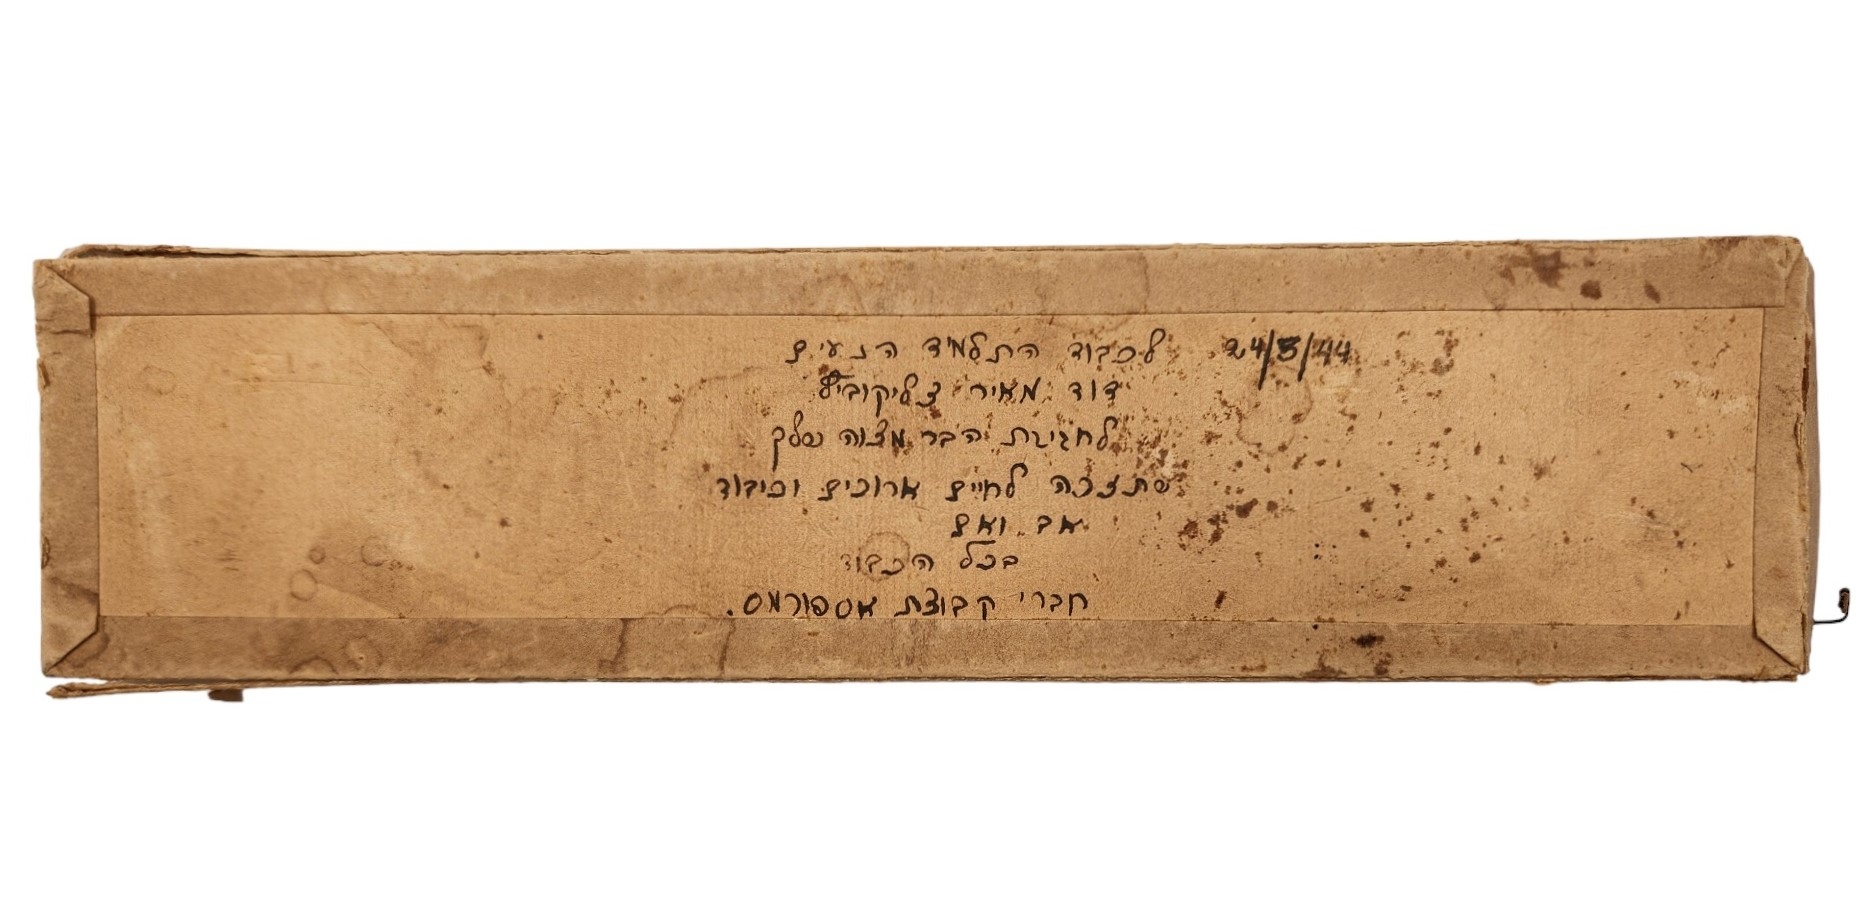 24/3/44 לכבוד התלמיד הנעים
דוד מאיר צליקוביץ
לחגיגת הבר מצוה שלך
שתזכה לחיים ארוכים וכיבוד
אב ואם
בכל הכבוד
חברי קבוצת אספורמס.